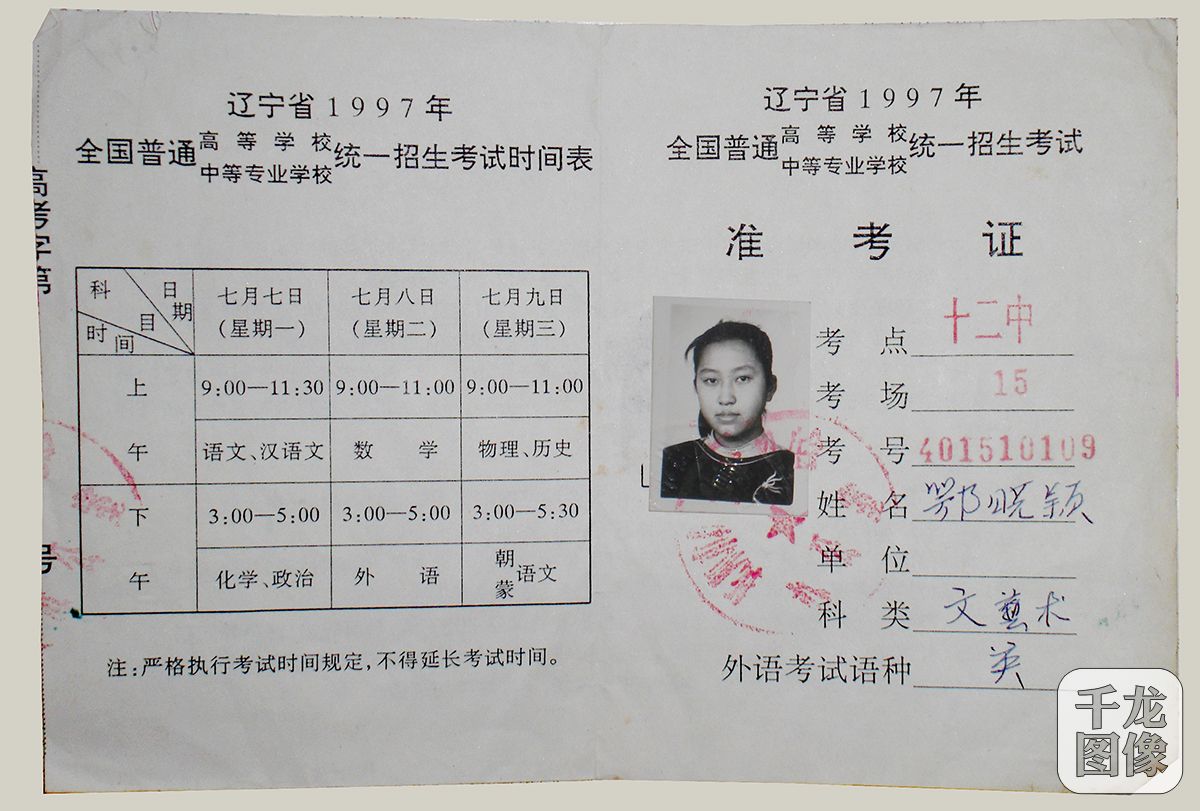 高考字第
号
辽宁省1997年
全国普通高等学校中等专业学校统一招生考试时间表
科目 日期 时间
七月七日 七月八日 七月九日
（星期一） （星期二） （星期三）
上午
9:00—11:30 9:00—11:00 9:00—11:00
语文、汉语文 数学 物理、历史
下午
3:00—5:00 3:00—5:00 3:00—5:30
化学、政治 外语 朝蒙语文
注:严格执行考试时间规定,不得延长考试时间。
辽宁省1997年
全国普通高等学校中等专业学校统一招生考试
准考证
考点 十二中
考场 15
考号 401510109
姓名 鄂晓颖
单位
科类 文藝术
外语考试语种 英
千龙
图像